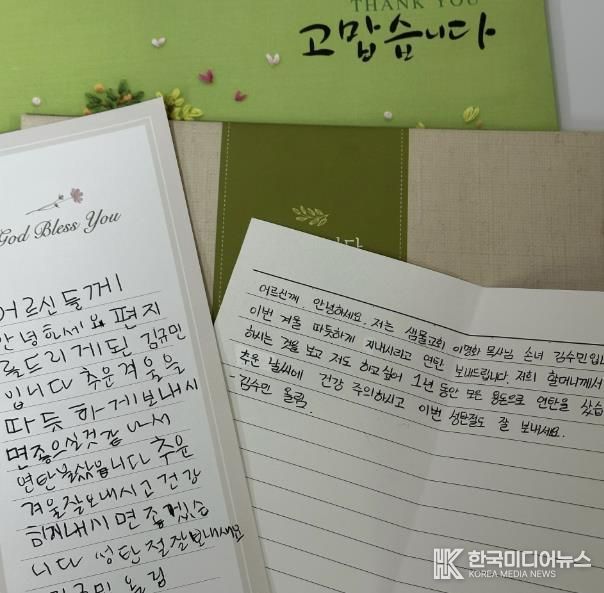 THANK YOU
고맙습니다
God Bless You
어르신들께
안녕하세요 편지
를드리게된 김규민
입니다 추운겨울을
따듯하게보내시
면좋으실것같아서
연탄불샀습니다 추운
겨울잘보내시고건강
히지내시면 좋겠습
니다 성탄절잘보내세요
김규민 올림
어르신께 안녕하세요. 저는 샘물교회 이명화 목사님 손녀 김수민입니
이번 겨울 따듯하게 지내시라고 연탄 보내드립니다. 저희 할머니께서
하시는 것을 보고 저도 하고싶어 1년 동안 모은 용돈으로 연탄을 샀습
추운 날씨에 건강 주의하시고 이번 성탄절도 잘 보내세요.
- 김수민 올림.
한국미디어뉴스
KOREA MEDIA NEWS